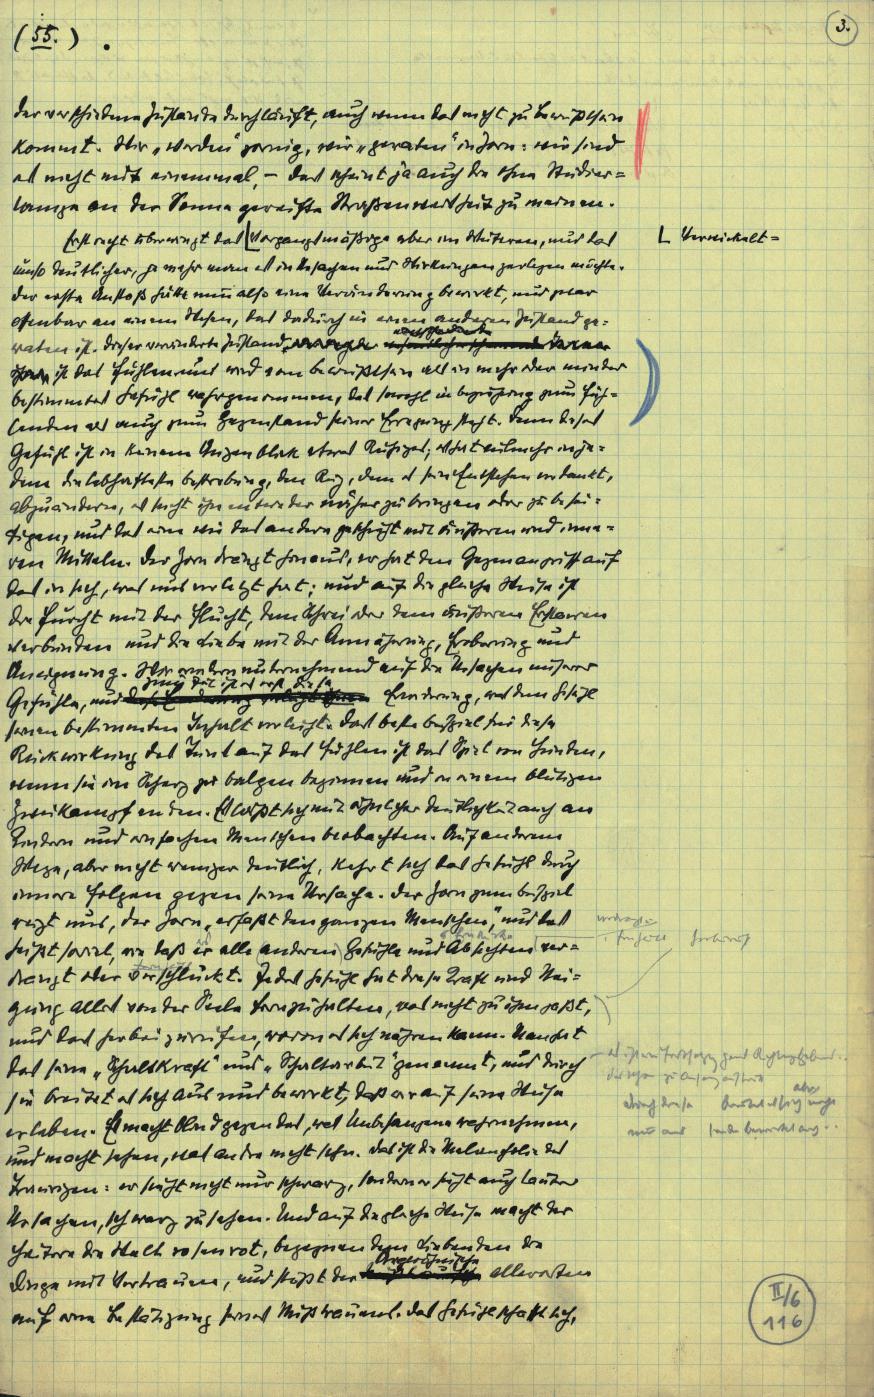 (55.) .
3.
der verschiedene Zustände durchläuft, auch wenn das nicht zu Bewußtsein
kommt. Wir „werden" zornig, wir „geraten" in Zorn: wir sind
es nicht mit einemmal, – das scheint ja auch die ohne Studier=
lampe an der Sonne gereifte Straßenweisheit zu meinen.
Erst recht überwiegt das Vorgangsmäßige aber im Weiteren, und das
Verwickelt=
umso deutlicher, je mehr man es in Ursachen und Wirkungen zerlegen möchte.
Der erste Anstoß hätte nun also eine Veränderung bewirkt, und zwar
offenbar an einem Wesen, das dadurch in einen anderen Zustand ge=
raten ist. Dieser veränderte Zustand
ist das Fühlen und wird vom Bewußtsein als ein mehr oder minder
bestimmtes Gefühl wahrgenommen, das sowohl in Beziehung zum Füh=
lenden als auch zum Gegenstand seiner Erregung steht. Denn dieses
Gefühl ist in keinem Augenblick etwas Ruhiges; es hat vielmehr in je=
dem die lebhafteste Bestrebung, den Reiz, dem es sein Entstehen verdankt,
abzuändern, es sucht ihn entweder näher zu bringen oder zu besei=
tigen, und das eine wie das andere geschieht mit äußeren und inne=
ren Mitteln. Der Zorn drängt hinaus, er hat den Gegenangriff auf
das in sich, was uns verletzt hat; und auf die gleiche Weise ist
die Furcht mit der Flucht, dem Schrei oder dem äußeren Erstarren
verbunden und die Liebe mit der Annäherung, Eroberung und
Aneignung. Wir ändern unternehmend auf die Ursachen unserer
Gefühle, und diese Änderung, was dem Gefühl
seinen bestimmten Inhalt verleiht. Das beste Beispiel für diese
Rückwirkung des Tuns auf das Fühlen ist das Spiel von Hunden,
wenn sie im Scherz zu balgen beginnen und in einem blutigen
Zweikampf enden. Es läßt sich mit ähnlicher Deutlichkeit auch an
Kindern und einfachen Menschen beobachten. Auf anderem
Wege, aber nicht weniger deutlich, kehrt sich das Gefühl durch
innere Folgen gegen seine Ursache. Der Zorn zum Beispiel
zeigt uns, der Zorn „erfaßt den ganzen Menschen", und das
heißt soviel, wie daß er alle anderen Gefühle und Absichten ver=
drängt oder verschluckt. Jedes Gefühl hat diese Kraft und Nei=
gung alles von der Seele fernzuhalten, was nicht zu ihm paßt,
und das herbeizurufen, wovon es sich nähren kann. Man hat
das seine „Schaltkraft" und „Schaltarbeit" genannt, und durch
sie breitet es sich aus und bewirkt, daß wir auf seine Weise
erleben. Es macht blind gegen das, was Unbefangene wahrnehmen,
und macht sehen, was andre nicht sehn. Das ist die Melancholie des
Traurigen: er sieht nicht nur schwarz, sondern er sieht auch lauter
Ursachen, schwarz zu sehen. Und auf die gleiche Weise macht der
Heitere die Welt rosenrot, begegnen dem Liebenden die
Dinge mit Vertrauen, und stößt der Argwöhnische allerorten
auf eine Bestätigung seines Mißtrauens. Das Gefühl schafft sich,
II/6
116